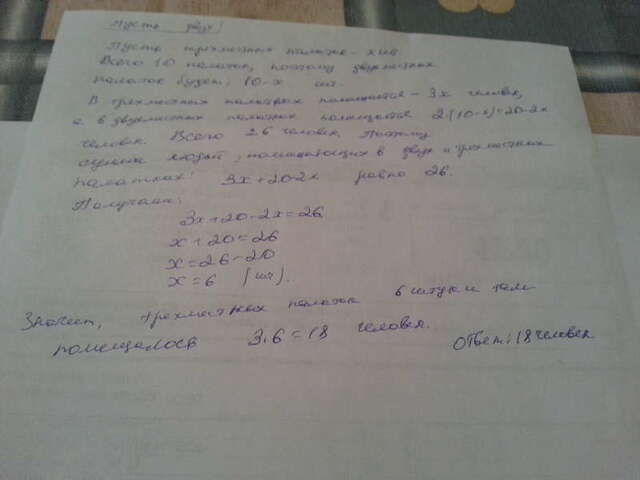 Пусть двух!
Пусть трехместных палаток - х шт
Всего 10 палаток, поэтому двухместных
палаток будет: 10-х шт.
В трехместных палатках помещается - 3х человек,
а в двухместных палатках помещается 2·(10-х)=20-2х
человек. Всего 26 человек. Поэтому
сумма людей, помещающихся в двух и трехместных
палатках: 3х+20-2х равно 26.
Получаем:
3х+20-2х=26
х+20=26
х=26-20
х=6 (шт).
Значит, трехместных палаток 6 штук и там
помещалось 3·6=18 человек.
Ответ: 18 человек